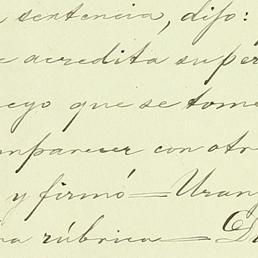 sentencia, dijo:
e acredita super
uego que se tome
mparecer con otr
y firmó=Uran
na rúbrica=